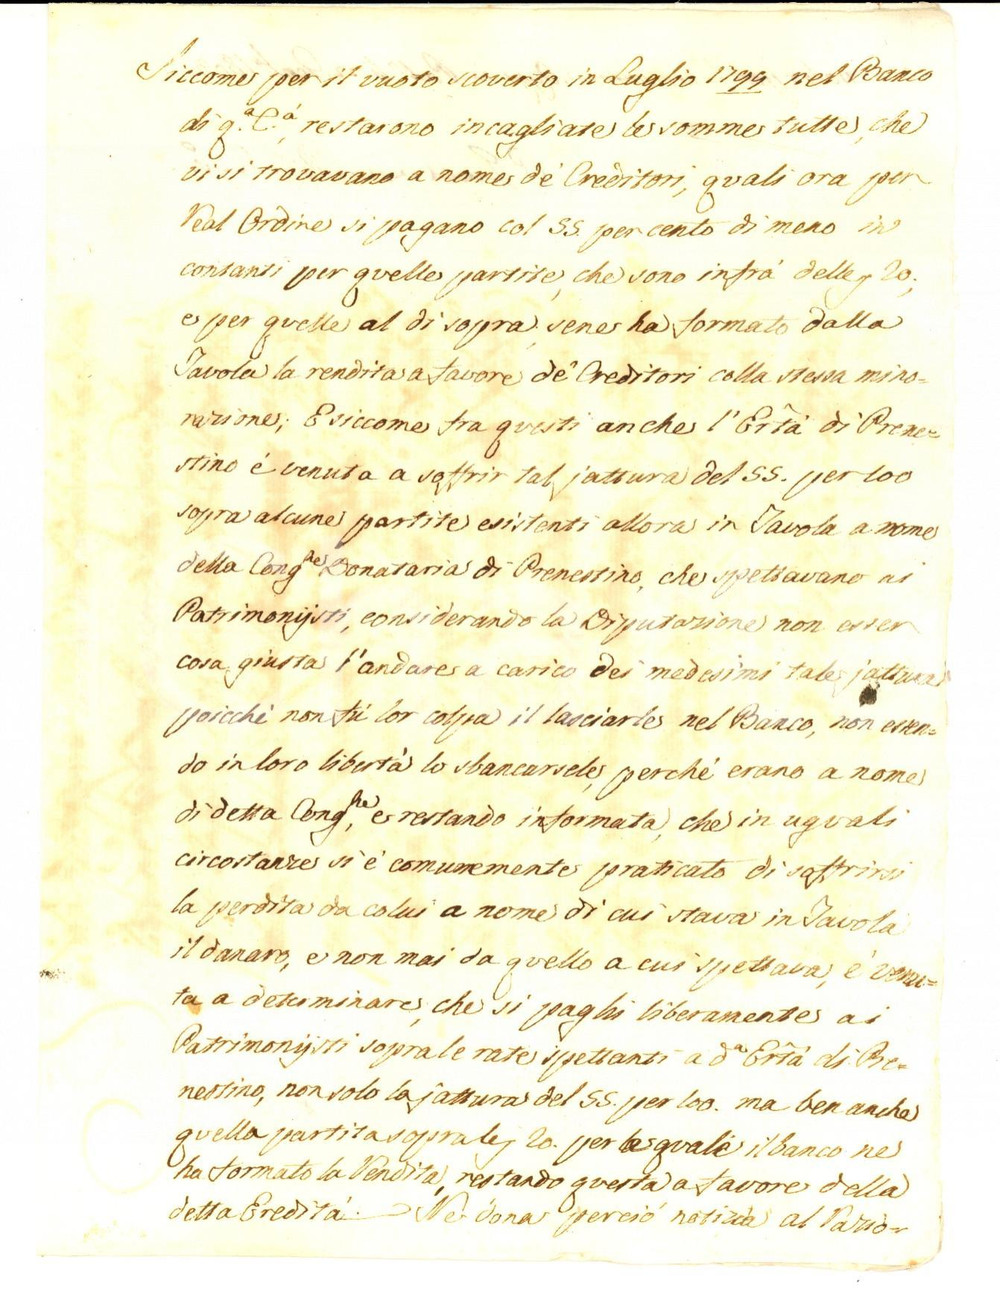 Siccome per il vuoto scoverto in Luglio 1799 nel Banco
di q.ª C.ª, restarono incagliate le somme tutte, che
vi si trovavano a nome de' Creditori, quali ora per
Real Ordine si pagano col 55. per cento di meno in
contanti per quelle partite, che sono infrà delle 20.,
e per quelle al di sopra, sene ha formato dalla
Tavola la rendita a favore de' Creditori colla stessa mino-
razione; E siccome fra questi anche l'Ertà di Prene-
stino é venuta a soffrir tal jattura del 55. per 100
sopra alcune partite esistenti allora in Tavola a nome
della Cong.ne Donataria di Prenestino, che spettavano ai
Patrimonijsti, considerando la Diputazione non esser
cosa giusta l'andare a carico dei medesimi tale jattura,
poicché non fù lor colpa il lasciarle nel Banco, non essen-
do in loro libertà lo sbancarsele, perché erano a nome
di detta Cong.ne, e restando informata, che in uguali
circostanze si é comunemente praticato di soffrirsi
la perdita da colui a nome di cui stava in Tavola
il danaro, e non mai da quello a cui spettava, é venu-
ta a determinare, che si paghi liberamente ai
Patrimonijsti sopra le rate spettanti a d.ª Ertà di Pre-
nestino, non solo la jattura del 55. per 100. ma ben anche
quella partita sopra le 20. per la quale il banco ne
ha formato la Rendita, restando questa a favore della
detta Eredità. Ne dona perció notizia al Razio-